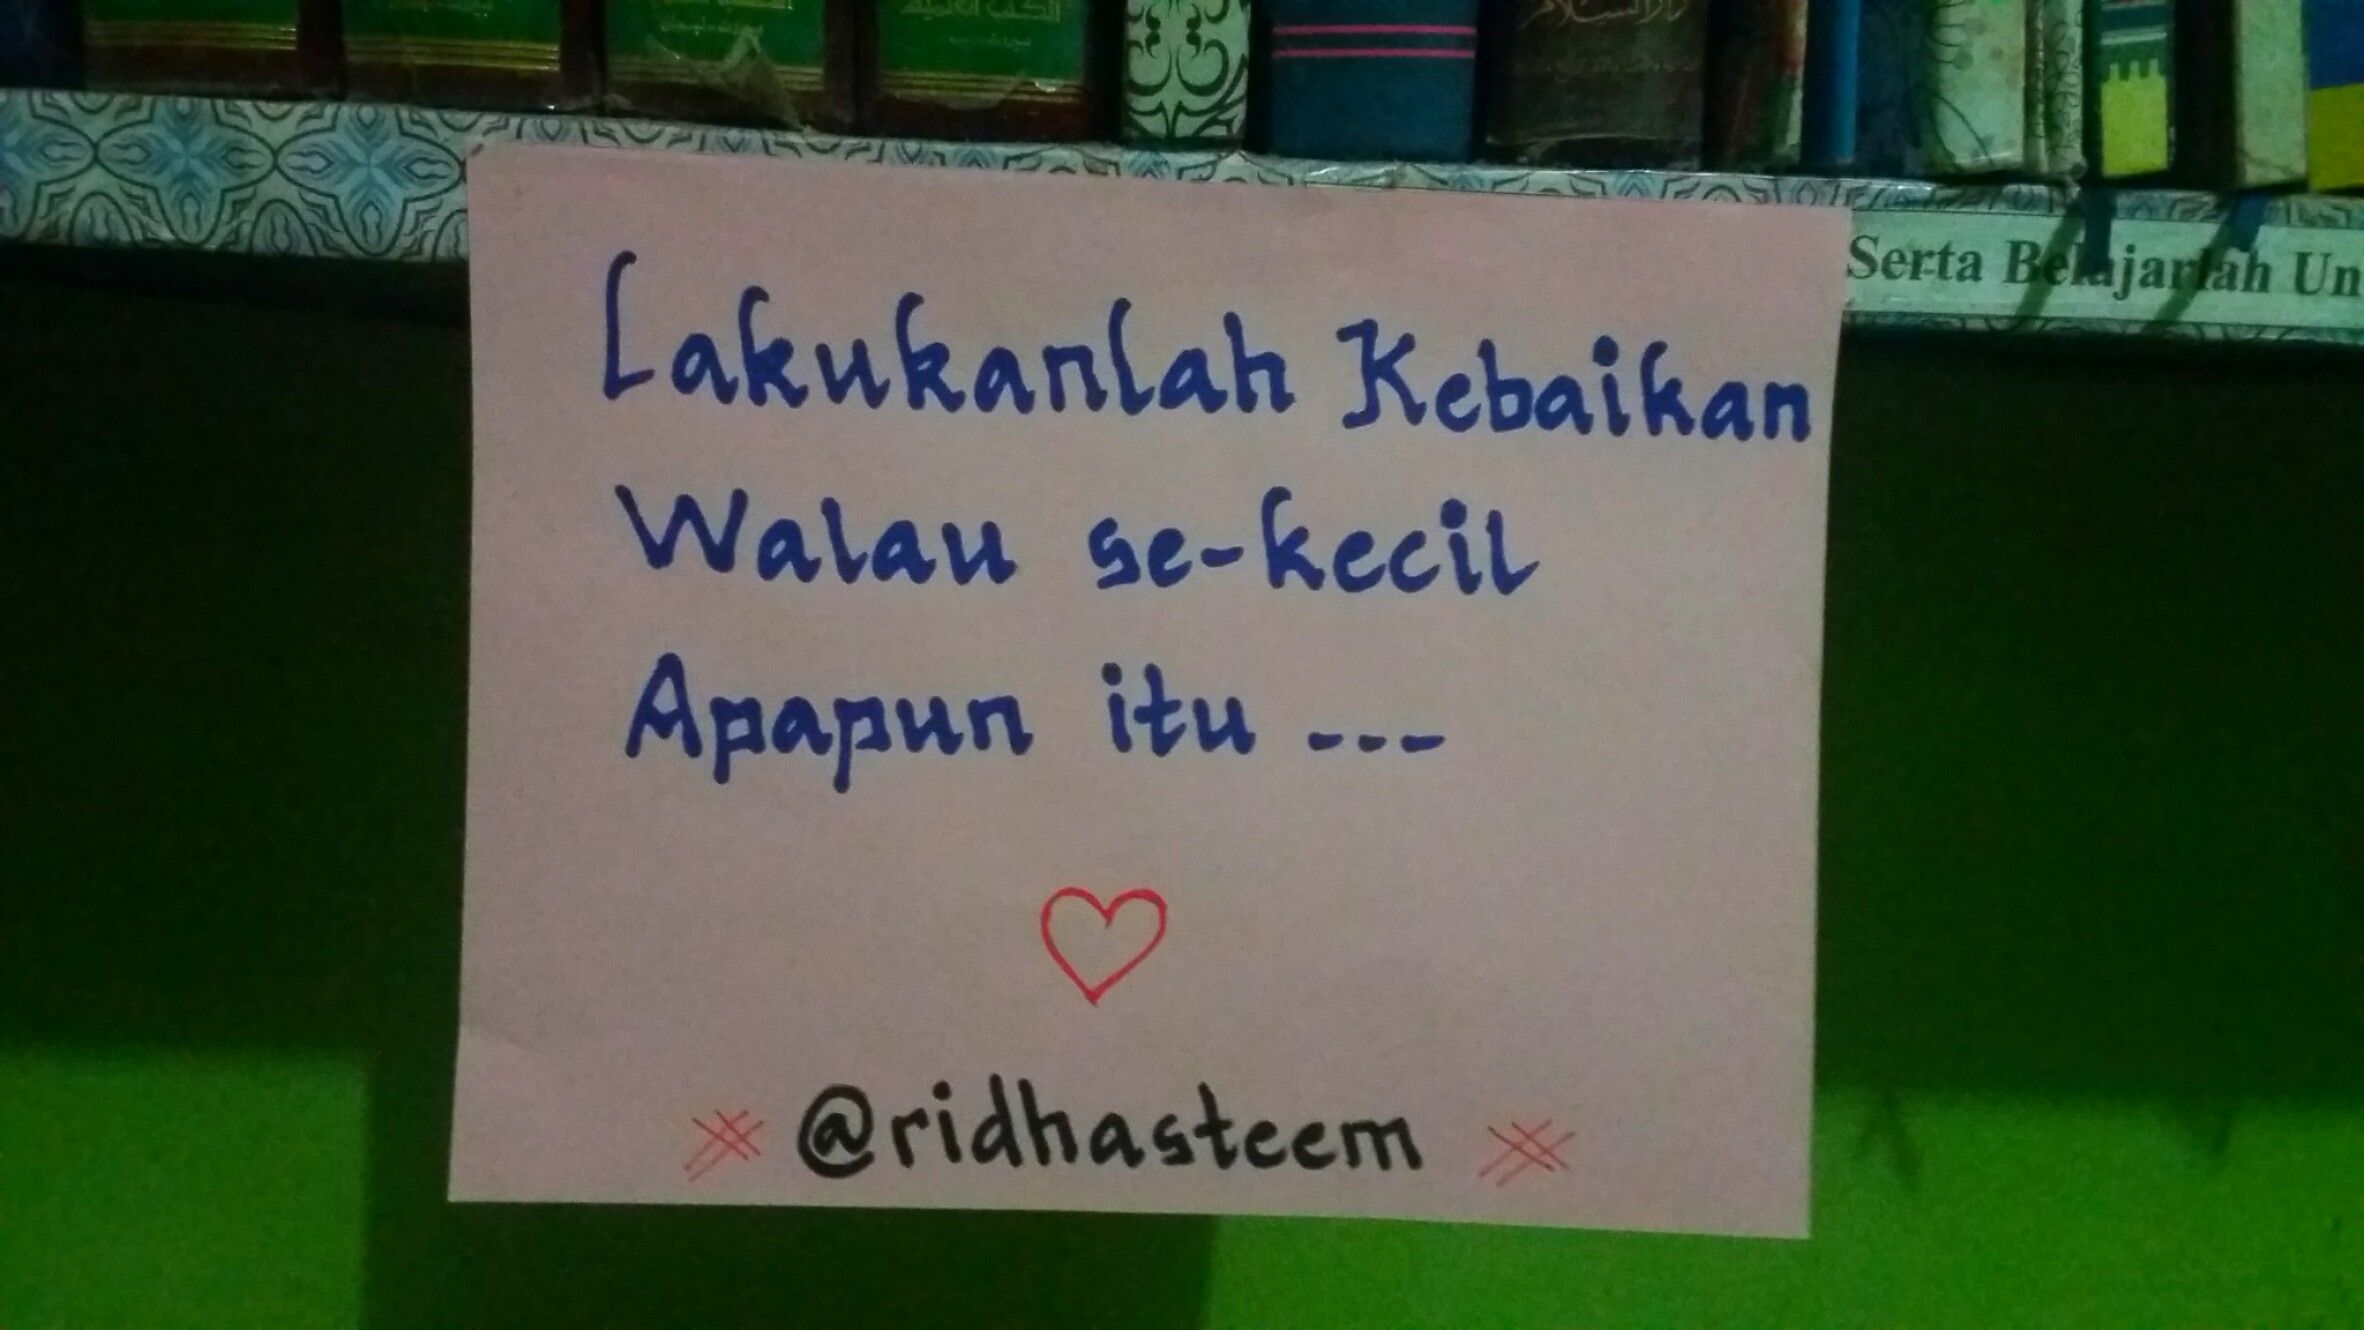 Serta Belajarlah Un
Lakukanlah Kebaikan
Walau se-kecil
Apapun itu ---
@ridhasteem